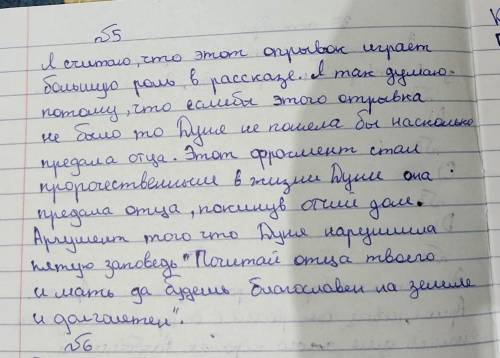 №5
Я считаю, что этот отрывок играет
большую роль в рассказе. Я так думаю
потому, что еслибы этого отрывка
не было то Дуне не поняла бы насколько
предала отца. Этот фрагмент стал
пророчественным в жизни Дуни она
предала отца, покинув отчий дом.
Аргумент того что Дуня нарушила
пятую заповедь "Почитай отца твоего
и мать да будешь благославен на земле
и долголетен".
№6